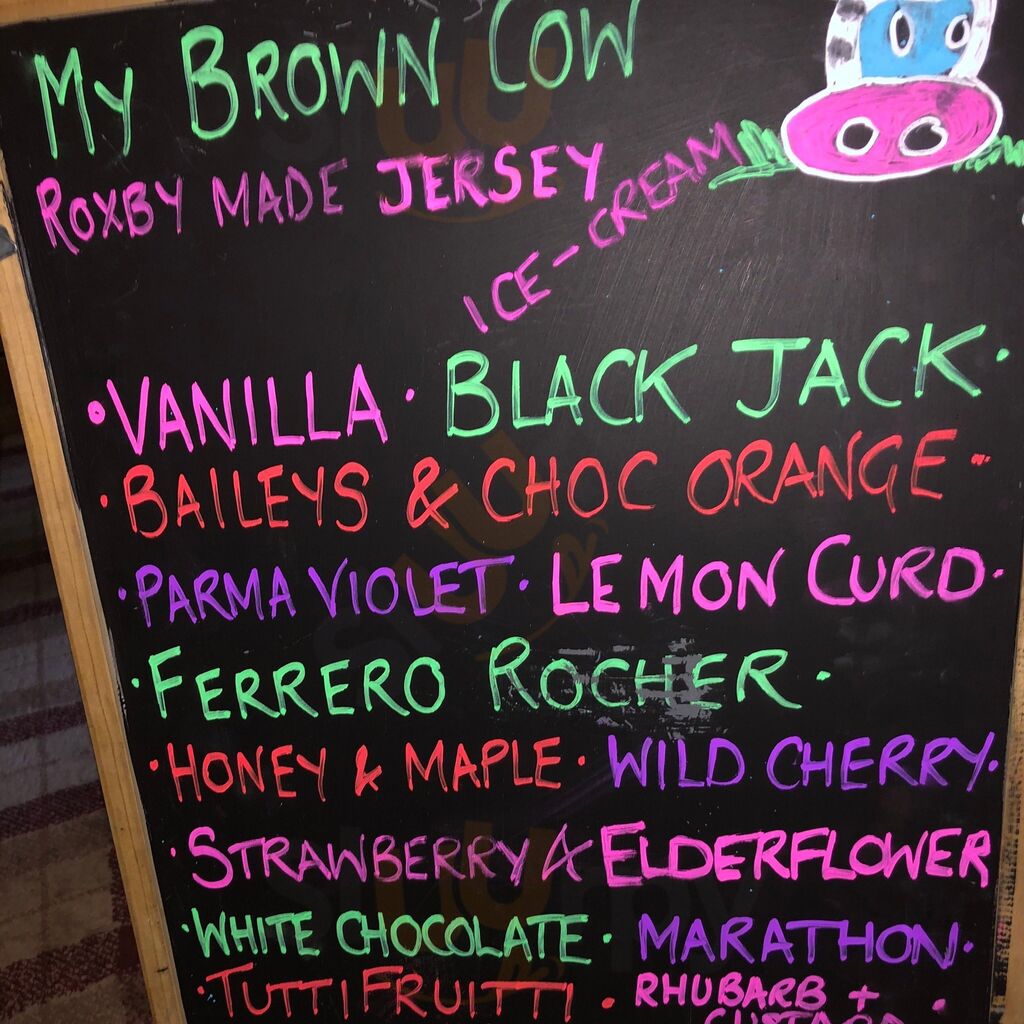 My BROWN COW
ROXBY MADE JERSEY
ICE-CREAM
• VANILLA • BLACK JACK •
• BAILEYS & CHOC ORANGE •
• PARMA VIOLET • LEMON CURD •
• FERRERO ROCHER •
• HONEY & MAPLE • WILD CHERRY •
• STRAWBERRY & ELDERFLOWER
• WHITE CHOCOLATE • MARATHON •
• TUTTI FRUITTI • RHUBARB + •
CUSTARD